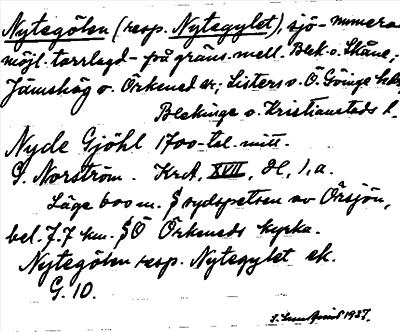 Nytegölen (resp. Nytegylet), sjö - numera
möjl. torrlagd - på gräns mell. Blek. o. Skåne;
Jämshög o. Örkened sr; Listers o. Ö. Göinge hrdr
Blekinge o. Kristianstads l.
Nyde Gjöhl 1700-tal. mitt.
S. Norström. KrA, XVII, H, 1, a.
Läge 600 m. S sydspetsen av Örsjön,
bel. 7.7 km. SÖ Örkeneds kyrka.
Nytegölen resp. Nytegylet ek.
G. 10.
1937.